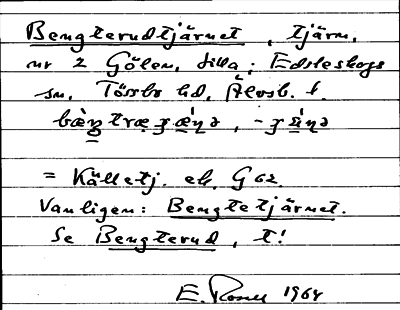 Bengterudtjärnet, tjärn,
nr 2 Gölen, lilla; Edsleskogs
sn, Tössbo hd, Älvsb. l.
= Källetj. ek. G 62.
Vanligen: Bengtetjärnet.
Se Bengterud, t!
E. Rosell 1964